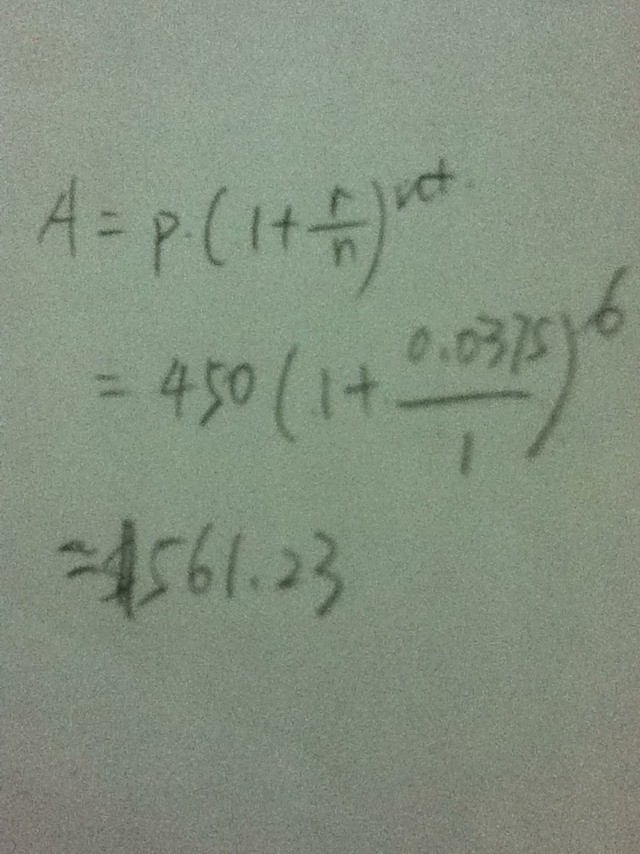 A = p.(1+r/n)^nt.
= 450(1+0.0375/1)^6
=$561.23